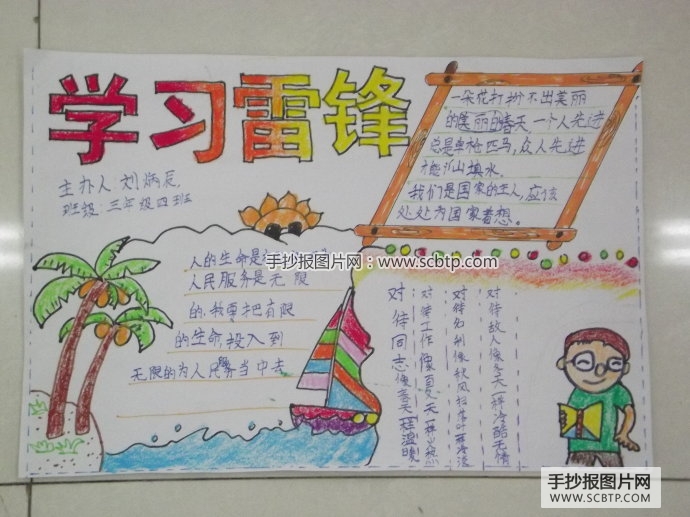 学习雷锋
主办人:刘炳辰
班级:三年级四班
一朵花打扮不出美丽
的美丽的春天一个人先进
总是单枪匹马,众人先进
才能山填水。
我们是国家的主人,应该
处处为国家着想。
人的生命是
手抄报图片网:www.scbtp.com
人民服务是无限
的,我要把有限
的生命,投入到
无限的为人民务当中去
对待同志像春天一样温暖
对待工作像夏天一样火热
对待名利像秋风扫落叶
对待敌人像冬天一样冷酷无情
手抄报图片网
WWW.SCBTP.COM